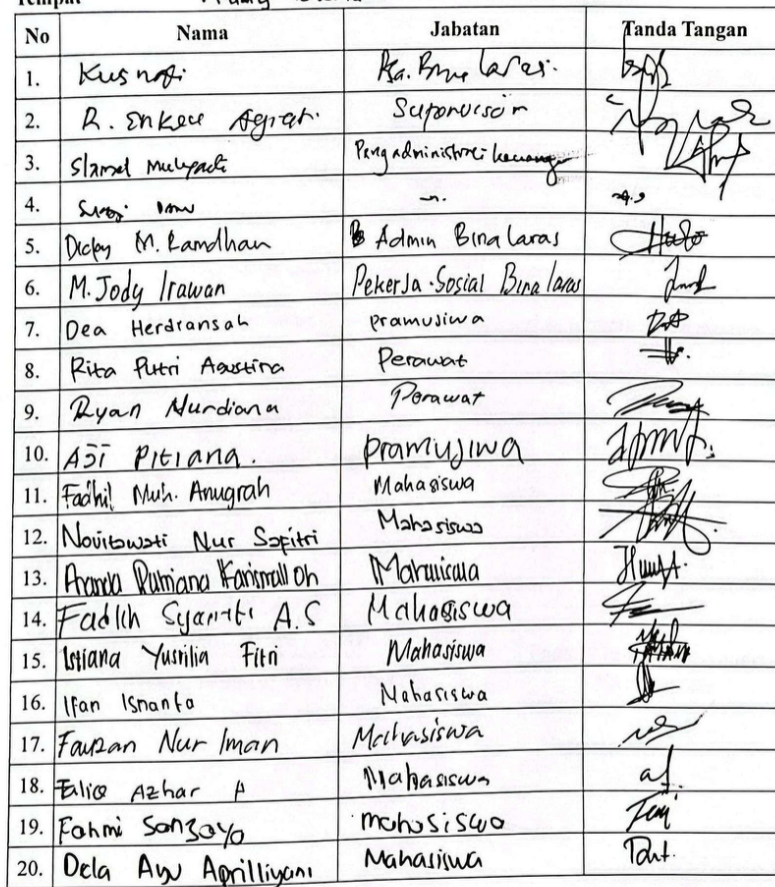 No Nama Jabatan Tanda Tangan
1. Kusnadi Ka. Bina Laras.
2. R. Enkeu Agiati. Supervisor
3. Slamet Mulyadi Pengadministrasi keuangan
4.
5. Dicky M. Ramdhan Admin Bina Laras
6. M. Jody Irawan Pekerja Sosial Bina laras
7. Dea Herdiansah pramujiwa
8. Rita Putri Agustina Perawat
9. Ryan Nurdiana Perawat
10. Aji Pitiana. pramujiwa
11. Fadhil Muh. Anugrah Mahasiswa
12. Novitawati Nur Sapitri Mahasiswa
13. Ananda Putriana Mahasiswa
14. Fadlih A.S Mahasiswa
15. Istiana Yusrilia Fitri Mahasiswa
16. Ifan Isnanto Mahasiswa
17. Fauzan Nur Iman Mahasiswa
18. Azhar Mahasiswa
19. Fahmi Sanjaya mahasiswa
20. Dela Ayu Aprilliyani Mahasiswa